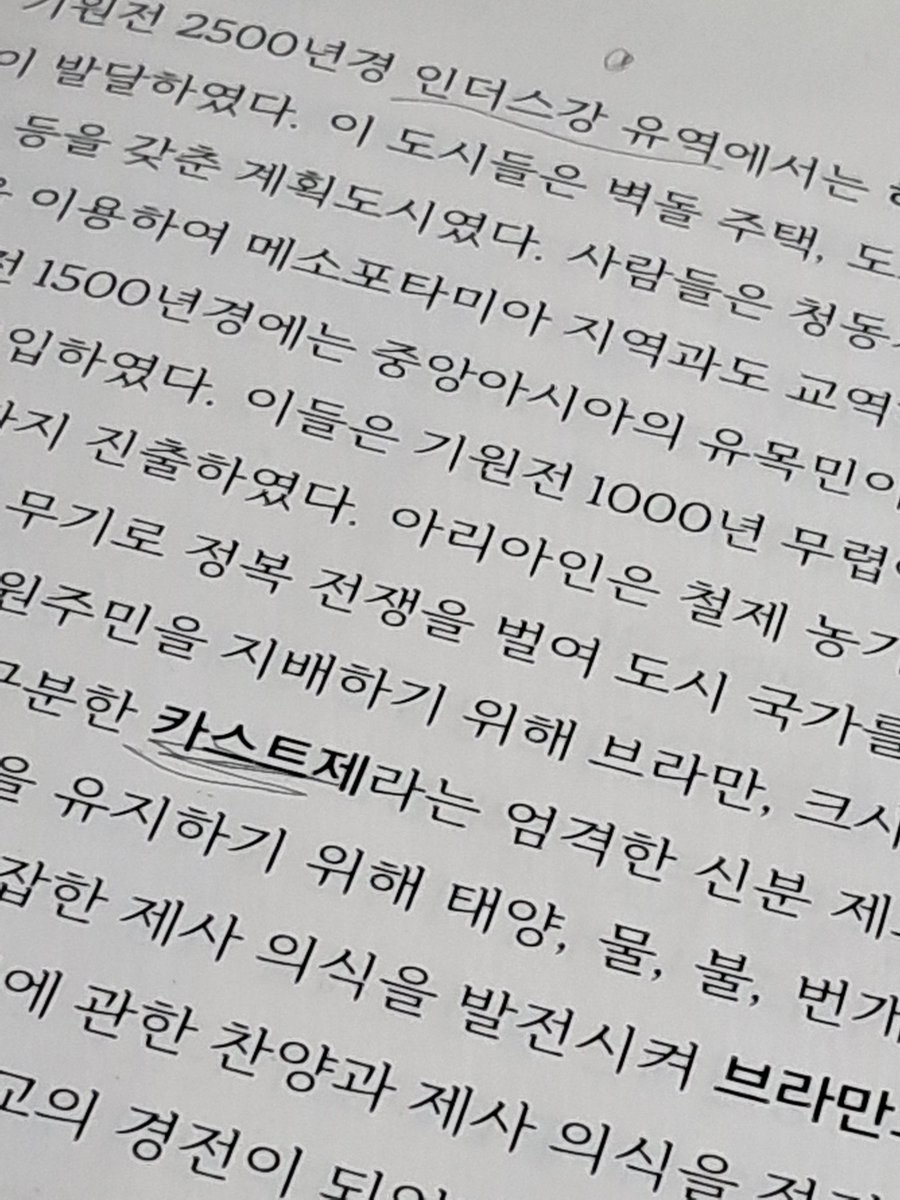 기원전 2500년경 인더스강 유역에서는
이 발달하였다. 이 도시들은 벽돌 주택,
등을 갖춘 계획도시였다. 사람들은
이용하여 메소포타미아 지역과도
1500년경에는 중앙아시아의
이들은 기원전 1000년 무렵
진출하였다. 아리아인은 철제
무기로 정복 전쟁을 벌여 도시 국가를
원주민을 지배하기 위해 브라만,
카스트제라는 엄격한 신분
을 유지하기 위해 태양, 물, 불,
제사 의식을 발전시켜
에 관한 찬양과 제사 의식을
경전이